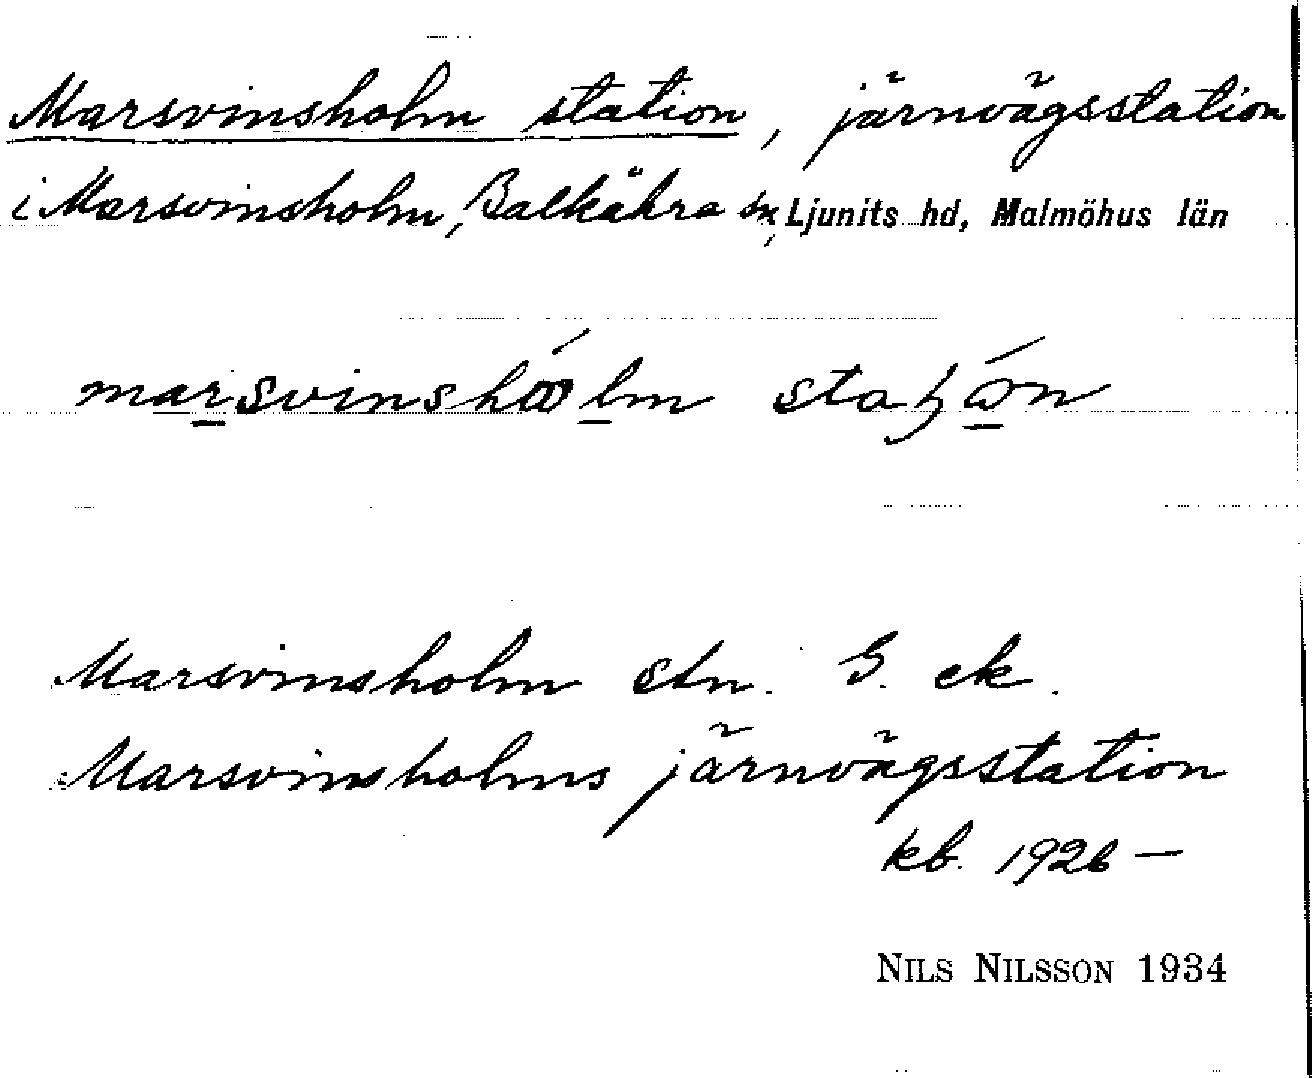 Marsvinsholm station, järnvägsstation
i Marsvinsholm, Balkåkra sn, Ljunits hd, Malmöhus län
marsvinshòlm staʃòn
Marsvinsholm stn. G. ek.
Marsvinsholms järnvägsstation
kb. 1926 —
NILS NILSSON 1934